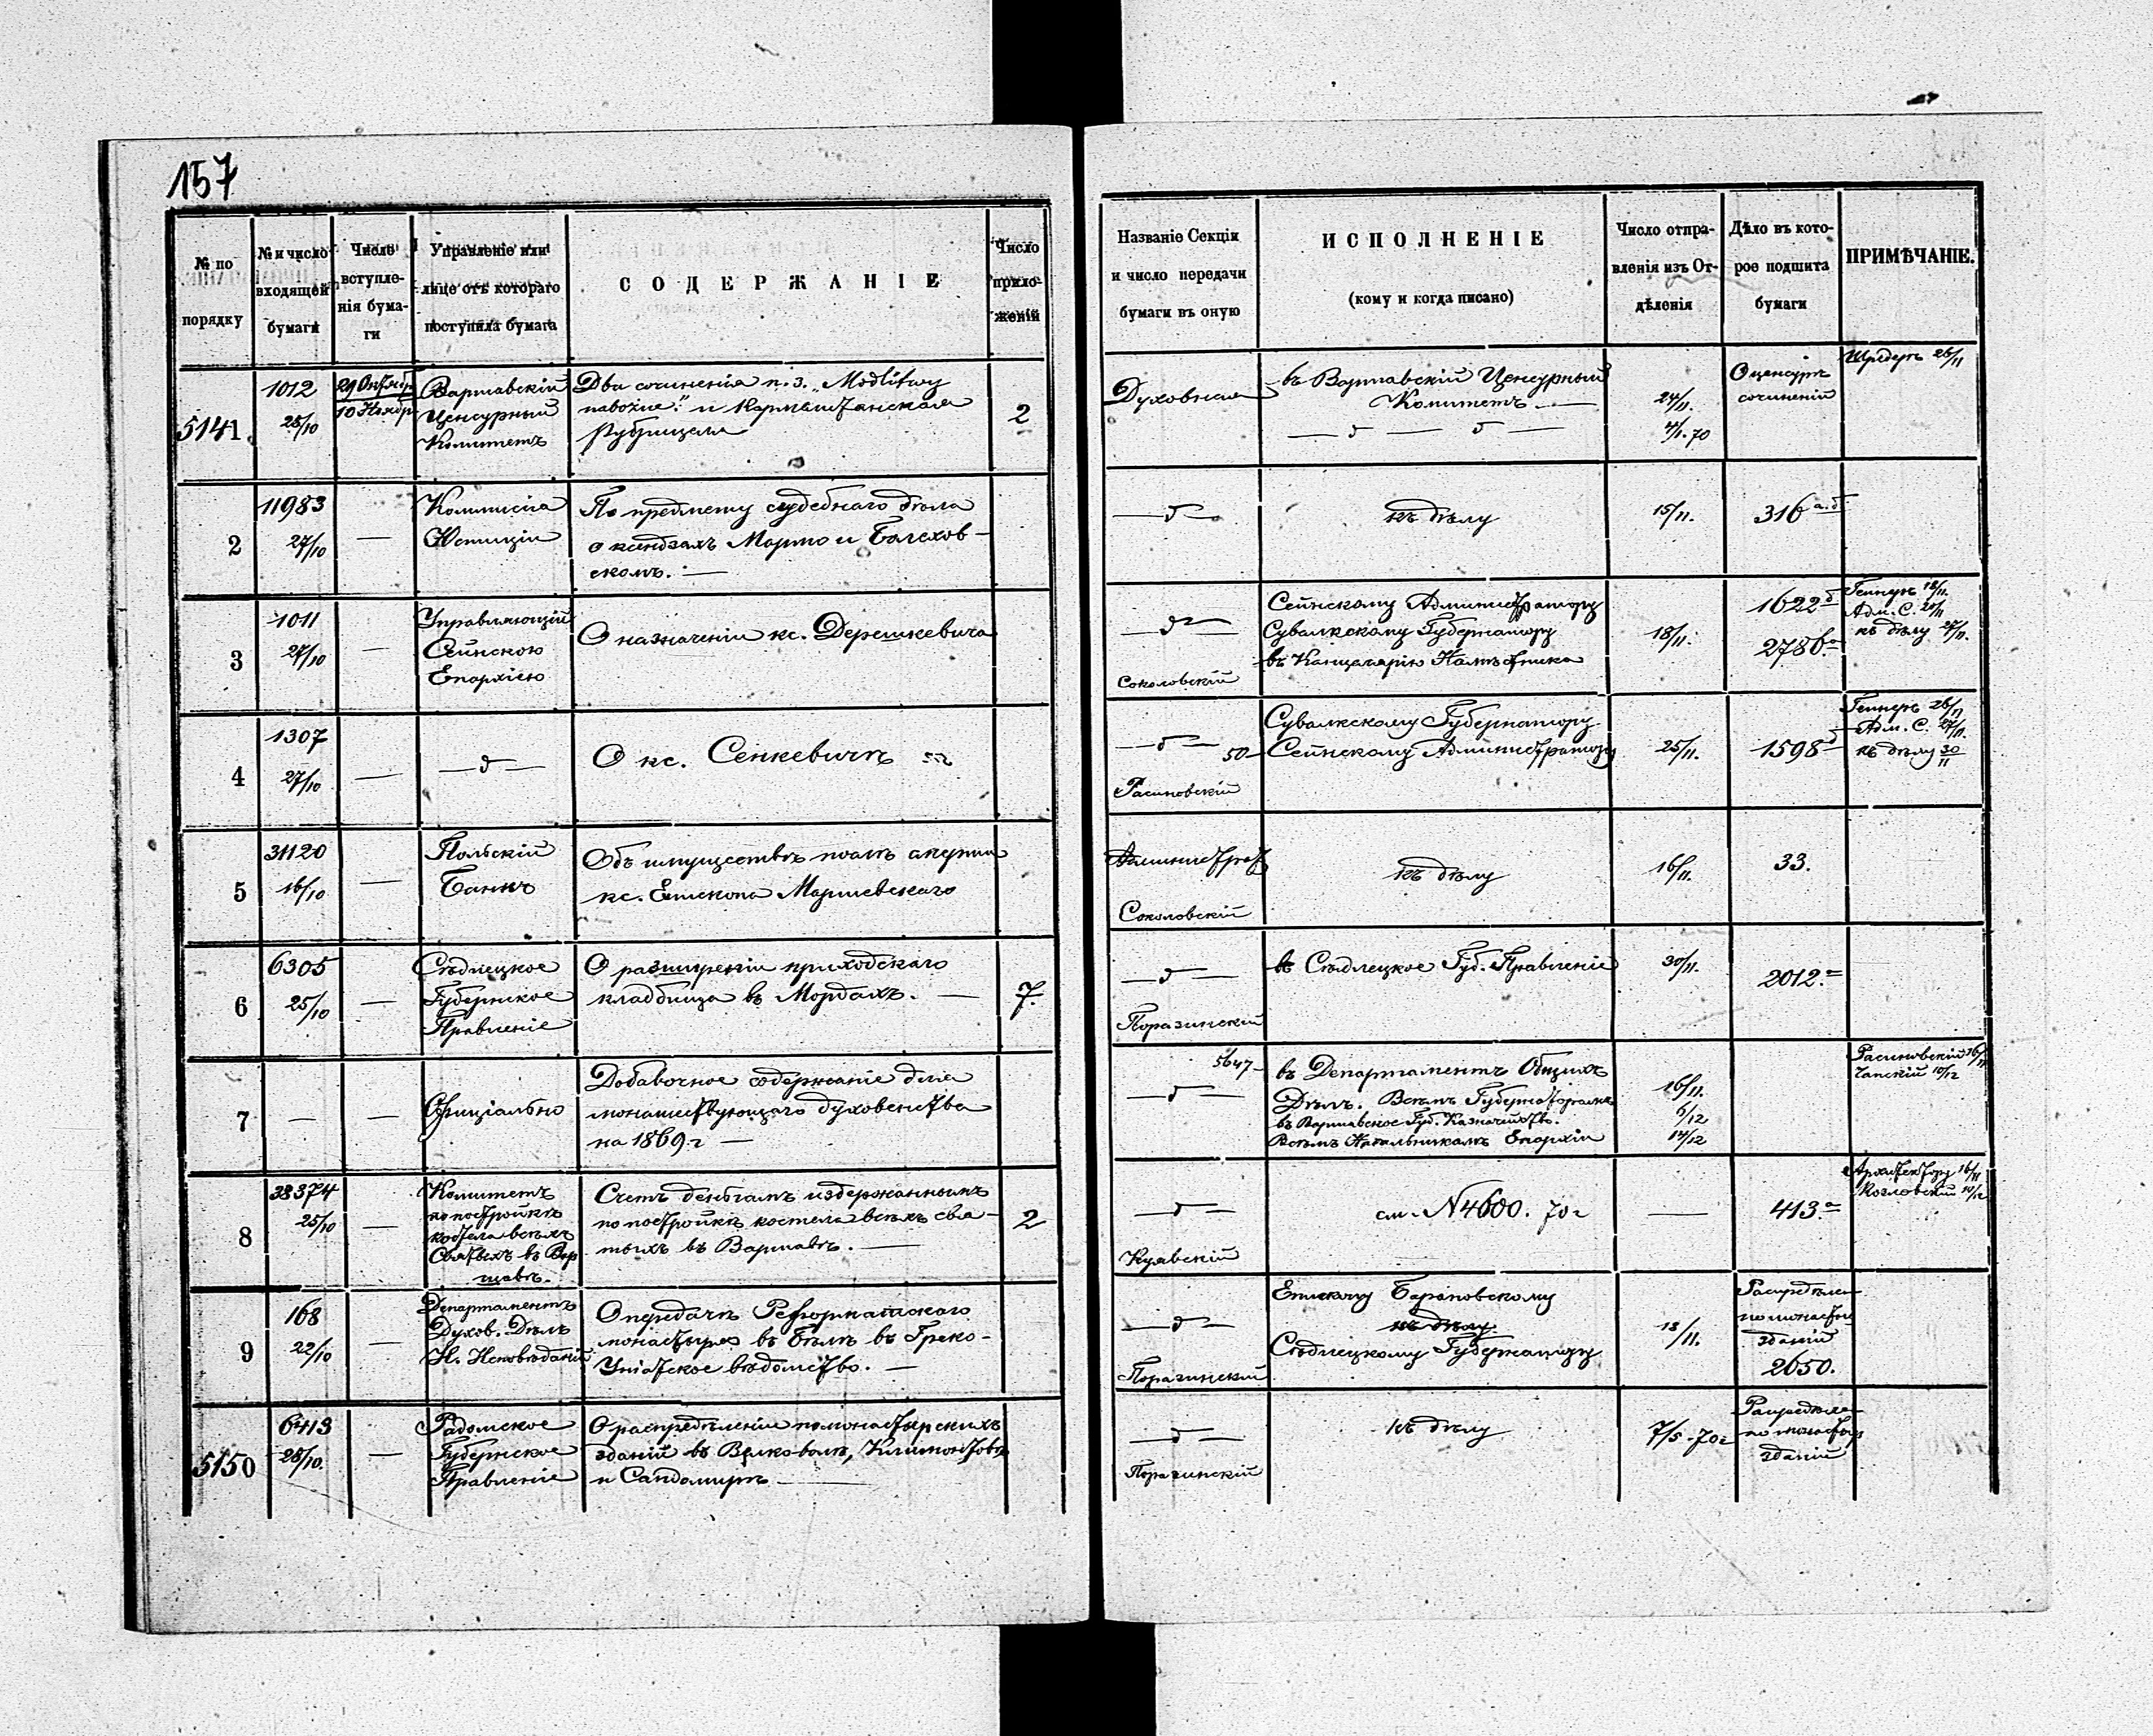 157
№ по порядку
№ и число входящей бумаги
Число вступле-нія бума-ги
Управленіе или лице отъ котораго поступила бумага
СОДЕРЖАНІЕ
Число прило-женій
Названіе Секціи и число передачи бумаги въ оную
ИСПОЛНЕНІЕ
(кому и когда писано)
Число отпра-вленія изъ От-дѣленія
Дѣло въ кото-рое подшита бумаги
ПРИМѢЧАНІЕ.
5141.
1012
28/10
29 Октябр
10 Ноябр
Варшавскій
Цензурный
Комитетъ
Два сочиненія п. з. „Modlitwy
nabożne" и
Рубрицела
2
Духовная
въ Варшавскій Цензурный
Комитетъ —
— д — д —
24/11.
4/1. 70
О цензурѣ
сочиненій
26/11
2
11983
27/10
—
Коммисія
Юстиціи
По предмету судебнаго дѣла
о ксендзахъ Мормо и Балехов-
скомъ. —
— д —
къ дѣлу
15/11.
316 а.б
3
1011
27/10
—
Управляющій
Сейнскою
Епархіею
О назначеніи кс. Дерешкевича
— д —
Соколовскій
Сейнскому Администратору
Сувалкскому Губернатору
въ Канцелярію Намѣстника
18/11.
1622 б
2786
18/11.
Адм. С. 20/11
къ дѣлу 27/11.
4
1307
27/10
—
— д —
О кс. Сенкевичѣ
— д —
50 —
Расиновскій
Сувалкскому Губернатору
Сейнскому Администратору
25/11.
1598
26/11
Адм. С. 27/11
къ дѣлу 30/11
5
31120
16/10
—
Польскій
Банкъ
Объ имуществѣ
кс. Епископа Маршевскаго
Администрат
Соколовскій
къ дѣлу
16/11.
33.
6
6305
25/10
—
Сѣдлецкое
Губернское
Правленіе
О разширеніи приходскаго
кладбища въ Мордахъ. —
7.
— д —
Поразинскій
въ Сѣдлецкое Губ. Правленіе
30/11.
2012.
7
—
—
Офиціально
Добавочное содержаніе для
монашествующаго духовенства
на 1869 г —
5647 —
— д —
въ Департаментъ Общихъ
Дѣлъ. Всѣмъ Губернаторамъ
въ Варшавское Губ. Казначейство.
Всѣмъ Начальникамъ Епархіи
16/11.
6/12
14/12
Расиновскій 16/11
Чапскій 10/12
8
38374
25/10
—
Комитетъ
по постройкѣ
костела всѣхъ
Святыхъ въ Вар
шавѣ.
Счетъ деньгамъ издержаннымъ
по постройкѣ костела всѣхъ свя-
тыхъ въ Варшавѣ. —
2
— д —
Куявскій
см. N 4600. 70 г
—
413.
Архитектору 16/11
Козловскій 10/12
9
168
22/10
—
Департаментъ
Духов. Дѣлъ
И. Исповѣданій
О передачѣ Реформатскаго
монастыря въ Бѣлѣ въ Греко-
Уніатское вѣдомство. —
— д —
Поразинскій
Епископу Барановскому
къ дѣлу.
Сѣдлецкому Губернатору
18/11.
Распредѣлен
помонастыр
зданій
2650.
5150
6413
28/10.
—
Радомское
Губернское
Правленіе
О распредѣленіи помонастырскихъ
зданій въ Велко-волѣ, Климонтовѣ
и Сандомирѣ —
— д —
Поразинскій
къ дѣлу
7/5 - 70 г
Распредѣлен
по монастыр
зданій